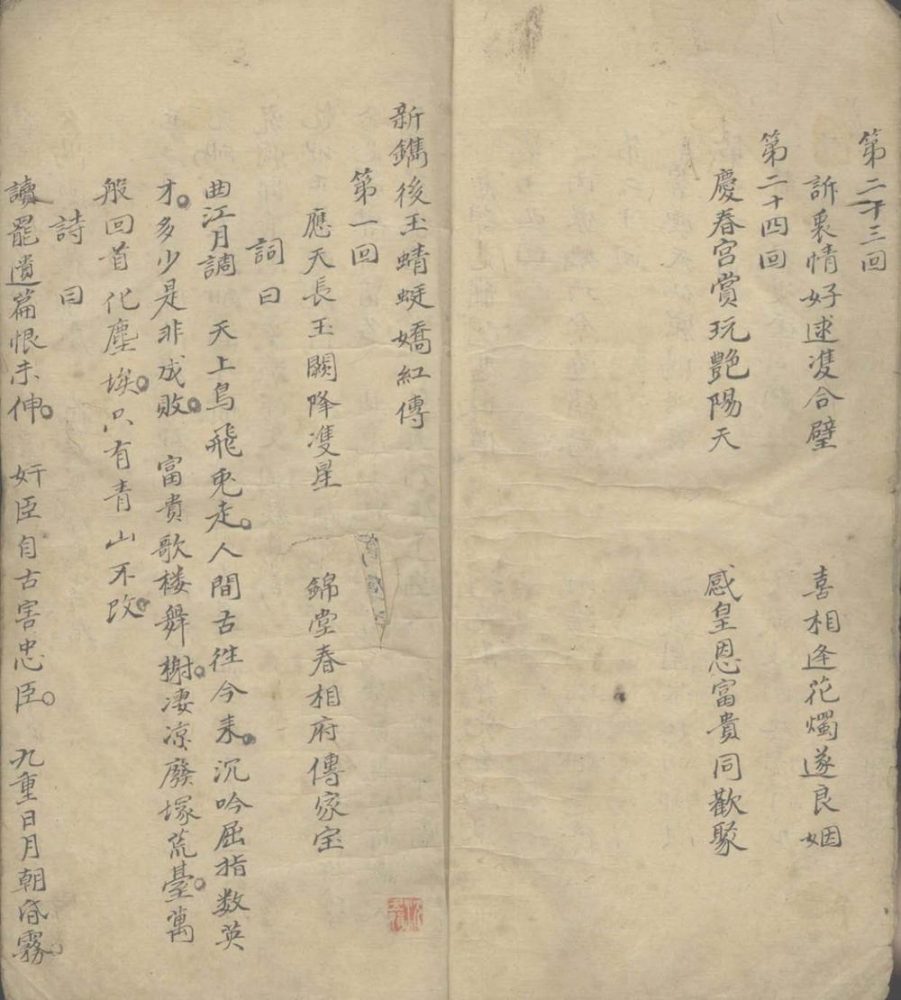 第二十三回
訴衷情好逑雙合璧 喜相逢花燭遂良姻
第二十四回
慶春宮賞玩艷陽天 感皇恩富貴同歡聚
新鐫後玉蜻蜓嬌紅傳
第一回
應天長玉闕降雙星 錦堂春相府傳家宝
詞曰
曲江月調 天上烏飛兎走。人間古徃今来。沉吟屈指数英
才。多少是非成敗。 富貴歌楼舞榭。凄凉廢塚荒臺。萬
般回首化塵埃。只有青山不改。
詩曰
讀罷遺篇恨未伸。 奸臣自古害忠臣。 九重日月朝昏霧。